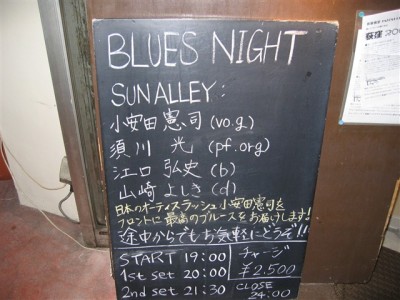 BLUES NIGHT
SUNALLEY:
小安田憲司 (vo.g.)
須川 光 (pf.org)
江口 弘史 (b)
山崎よしき (d)
日本のオーティスラッシュ小安田憲司を
フロントに最高のブルースをお届けします!
途中からでもお気軽にどうぞ!!
START 19:00
1st set 20:00
2nd set 21:30
チャージ
¥2,500
CLOSE
24:00
荻窪